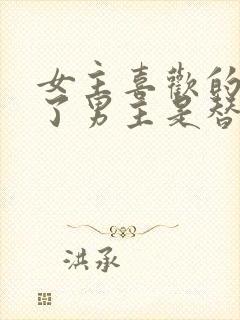 女主喜歡的
了男主是替
洪承